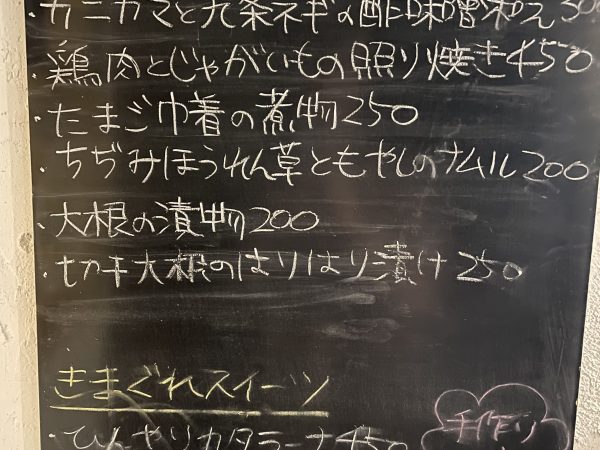 ・カニカマと九条ネギの酢味噌和え300
・鶏肉とじゃがいもの照り焼き450
・たまご巾着の煮物250
・ちぢみほうれん草ともやしのナムル200
・大根の漬物200
・切干大根のはりはり漬け250
きまぐれスイーツ
・ひんやりカタラーナ450
手作り